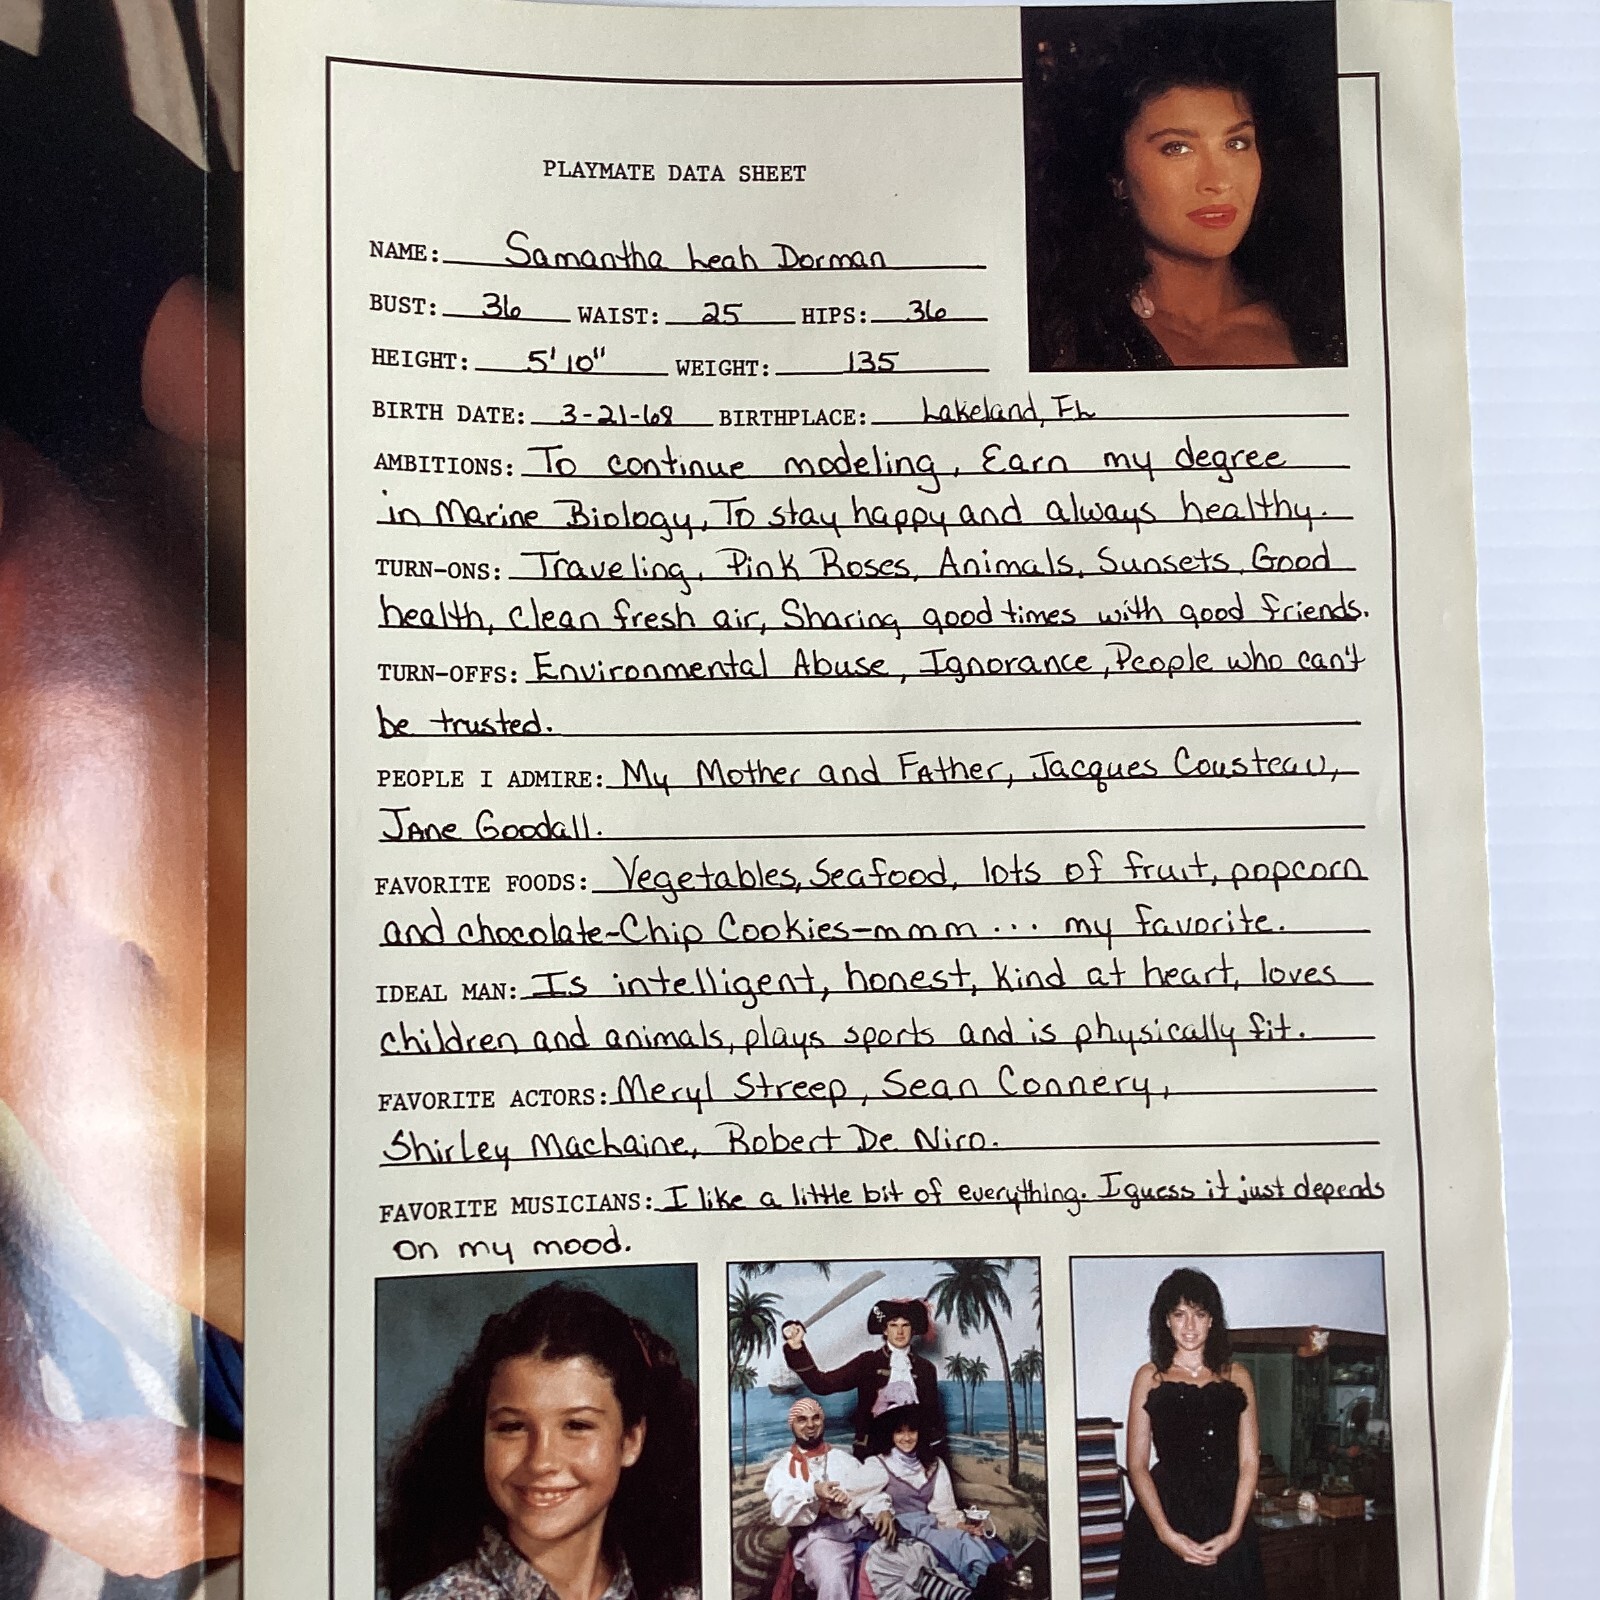 PLAYMATE DATA SHEET
NAME: Samantha Leah Dorman
BUST: 36 WAIST: 25 HIPS: 36
HEIGHT: 5'10" WEIGHT: 135
BIRTH DATE: 3-21-68 BIRTHPLACE: Lakeland, FL
AMBITIONS: To continue modeling, Earn my degree
in Marine Biology, To stay happy and always healthy.
TURN-ONS: Traveling, Pink Roses, Animals, Sunsets, Good
health, clean fresh air, Sharing good times with good friends.
TURN-OFFS: Environmental Abuse, Ignorance, People who can't
be trusted.
PEOPLE I ADMIRE: My Mother and Father, Jacques Cousteau,
Jane Goodall.
FAVORITE FOODS: Vegetables, Seafood, lots of fruit, popcorn
and chocolate-Chip Cookies-mmm... my favorite.
IDEAL MAN: Is intelligent, honest, kind at heart, loves
children and animals, plays sports and is physically fit.
FAVORITE ACTORS: Meryl Streep, Sean Connery,
Shirley MacLaine, Robert De Niro.
FAVORITE MUSICIANS: I like a little bit of everything. I guess it just depends
on my mood.